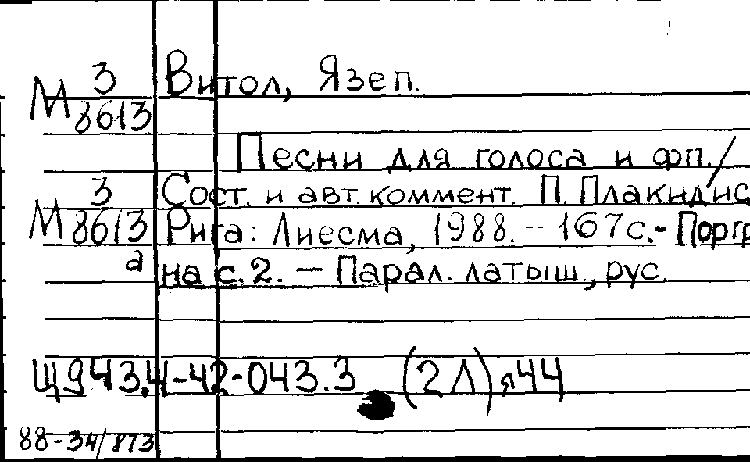 М 3/8613 Витол, Язеп.
Песни для голоса и фп./
М 3/8613 а Сост. и авт. коммент. П. Плакидис
Рига: Лиесма, 1988. - 167с.- Портр
на с. 2. — Парал. латыш., рус.
Щ943.4-42-043.3 (2Л)я44
88-34/873